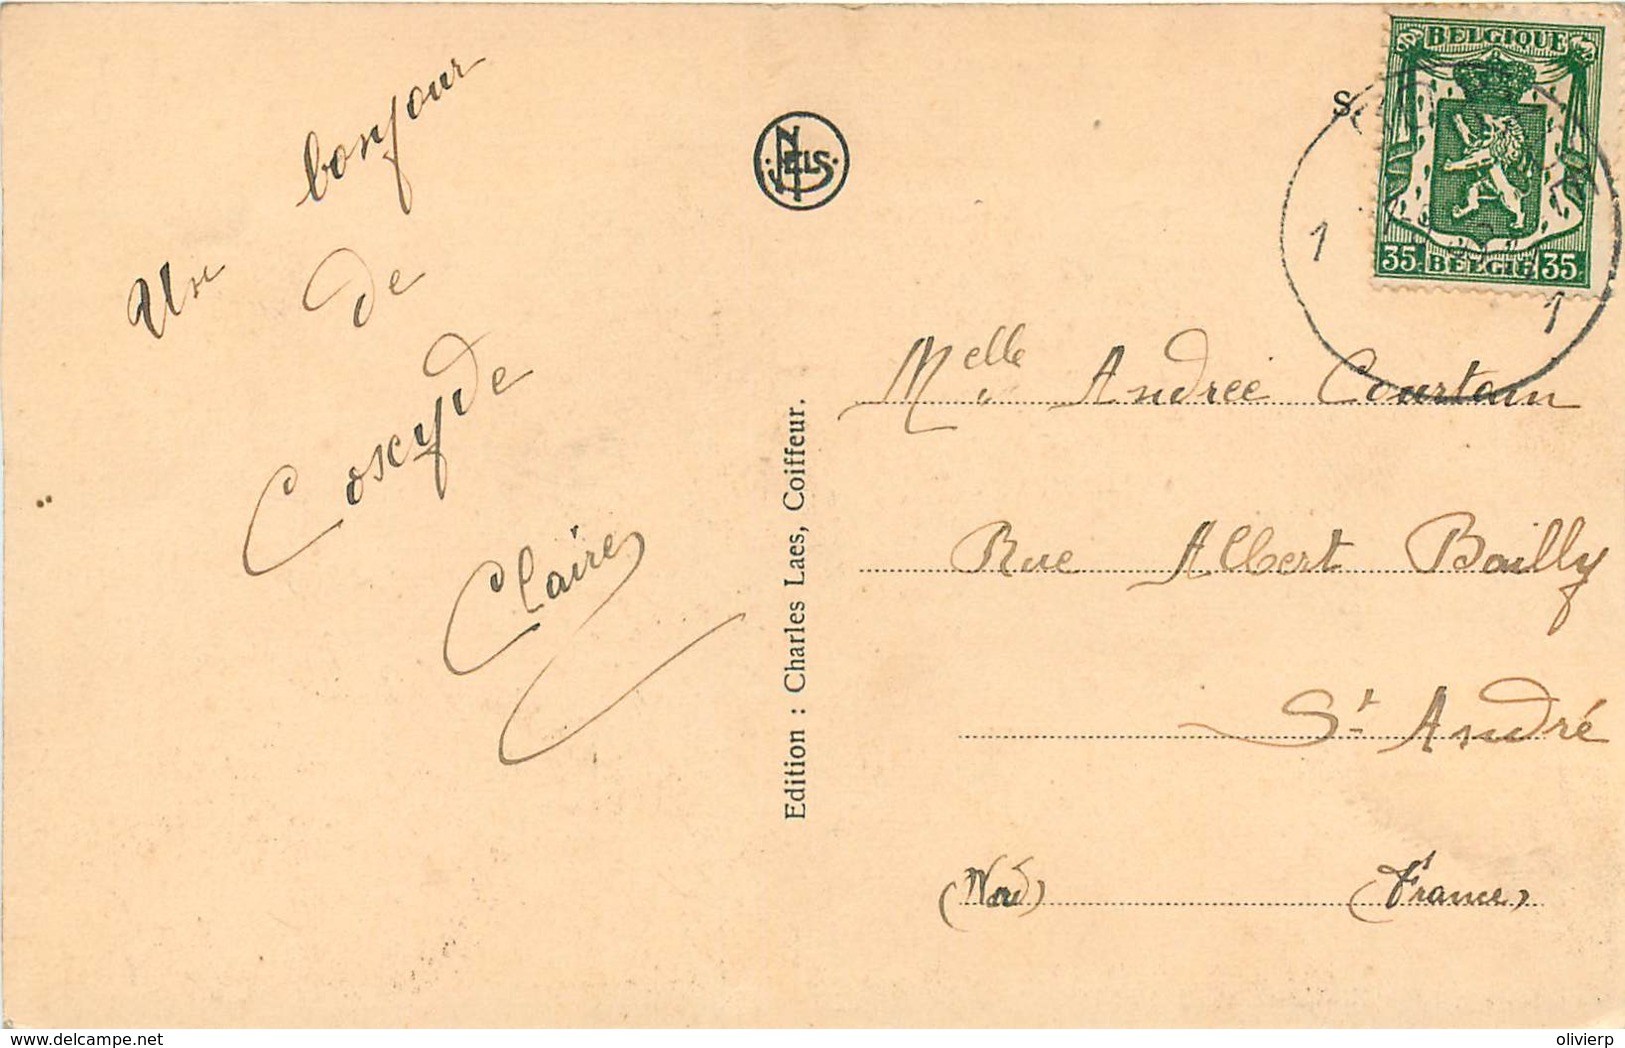 Un
bonjour
de
Coxyde
Claire
NELS
Edition : Charles Laes, Coiffeur.
S
BELGIQUE
35 BELGIE 35
1
1
Melle Andrée Courtain
Rue Albert Bailly
St André
(Nord) (France)
delcampe.net
olivierp